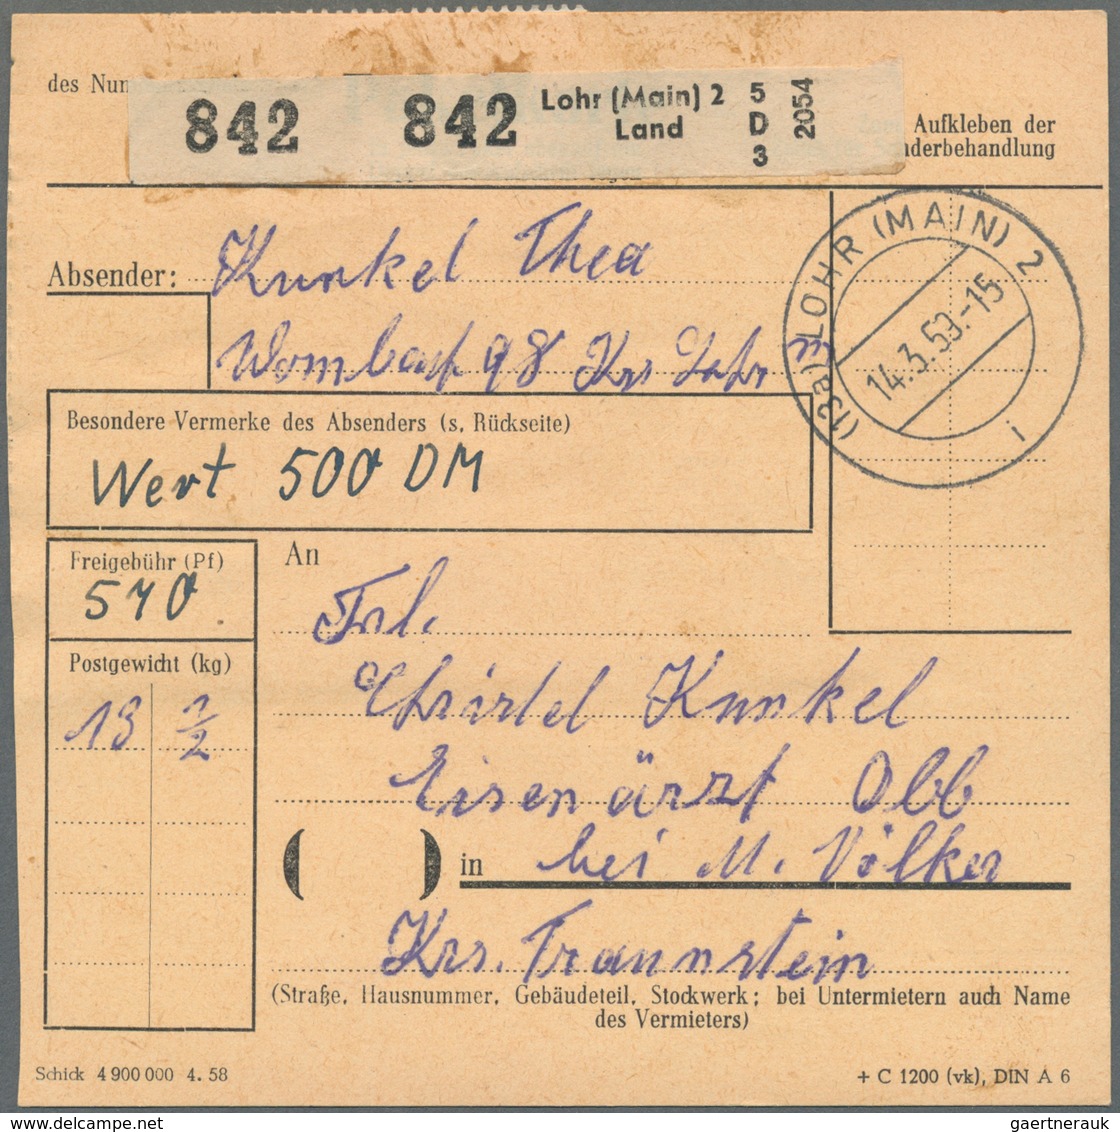 des Num
842 842 Lohr (Main) 2 5
Land D
3
2054
Aufkleben der
nderbehandlung
Absender: Kunkel Thea
Wombach 98 Krs Lohr M
(13a) LOHR (MAIN) 2
14.3.59.-15
i
Besondere Vermerke des Absenders (s. Rückseite)
Wert 500 DM
Freigebühr (Pf)
570
An
Frl.
Postgewicht (kg)
Christel Kunkel
18 1/2
Eisenärzt Obb
( ) in bei M. Völker
Krs. Traunstein
(Straße, Hausnummer, Gebäudeteil, Stockwerk; bei Untermietern auch Name
des Vermieters)
Schick 4 900 000 4. 58
+ C 1200 (vk), DIN A 6
gaertnerauk